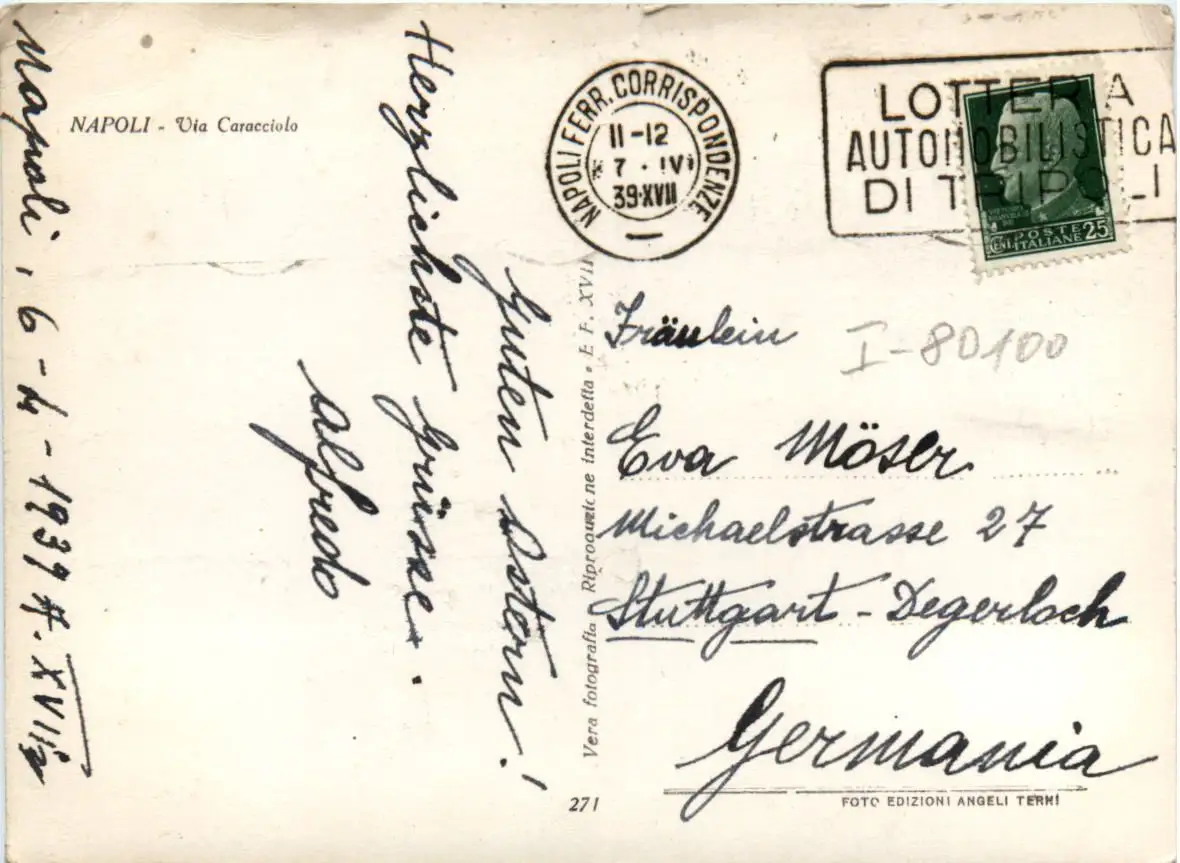 NAPOLI - Via Caracciolo
Napoli, 6-4-1939 A. XVII
Guten Ostern!
Herzlichste Grüsse.
Alfredo
NAPOLI FERR. CORRISPONDENZE
11-12
7 · IV
39·XVII
LOTTERIA
AUTOMOBILISTICA
DI TRIPOLI
POSTE
ITALIANE
CENT. 25
Fräulein
I-80100
Eva Möser
Michaelstrasse 27
Stuttgart - Degerloch
Germania
Vera fotografia Riproduzione interdetta · E F. XVII
271
FOTO EDIZIONI ANGELI TERNI